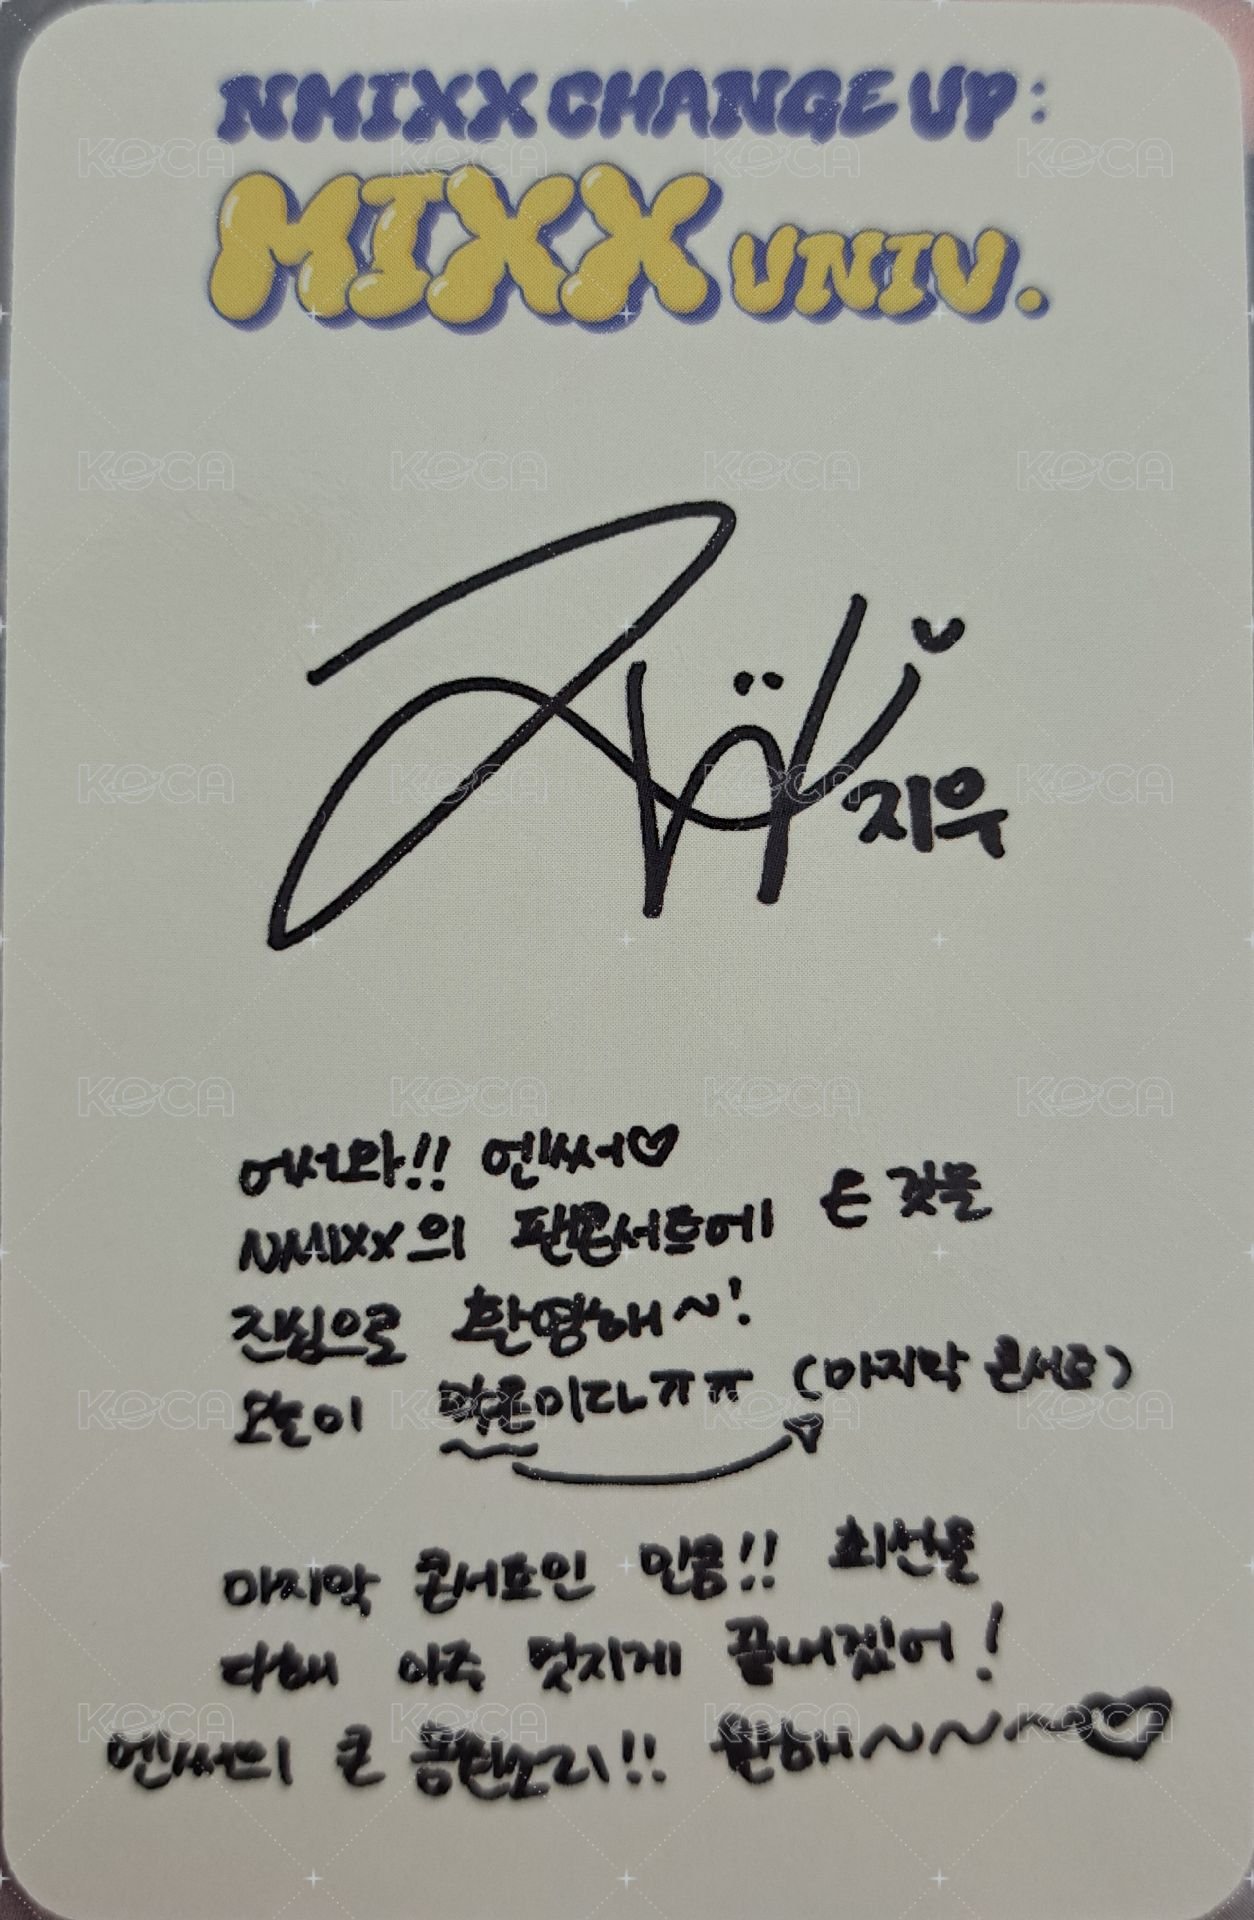 NMIXX CHANGE UP:
MIXX UNIV.
지우
어서와!! 엔써♡
NMIXX의 팬콘서트에 온 것을
진심으로 환영해~!
오늘이 막콘이다ㅠㅠ (마지막 콘서트)
마지막 콘서트인 만큼!! 최선을
다해 아주 멋지게 끝내겠어!
엔써의 큰 응원소리!! 원해~~~♡
KOCA